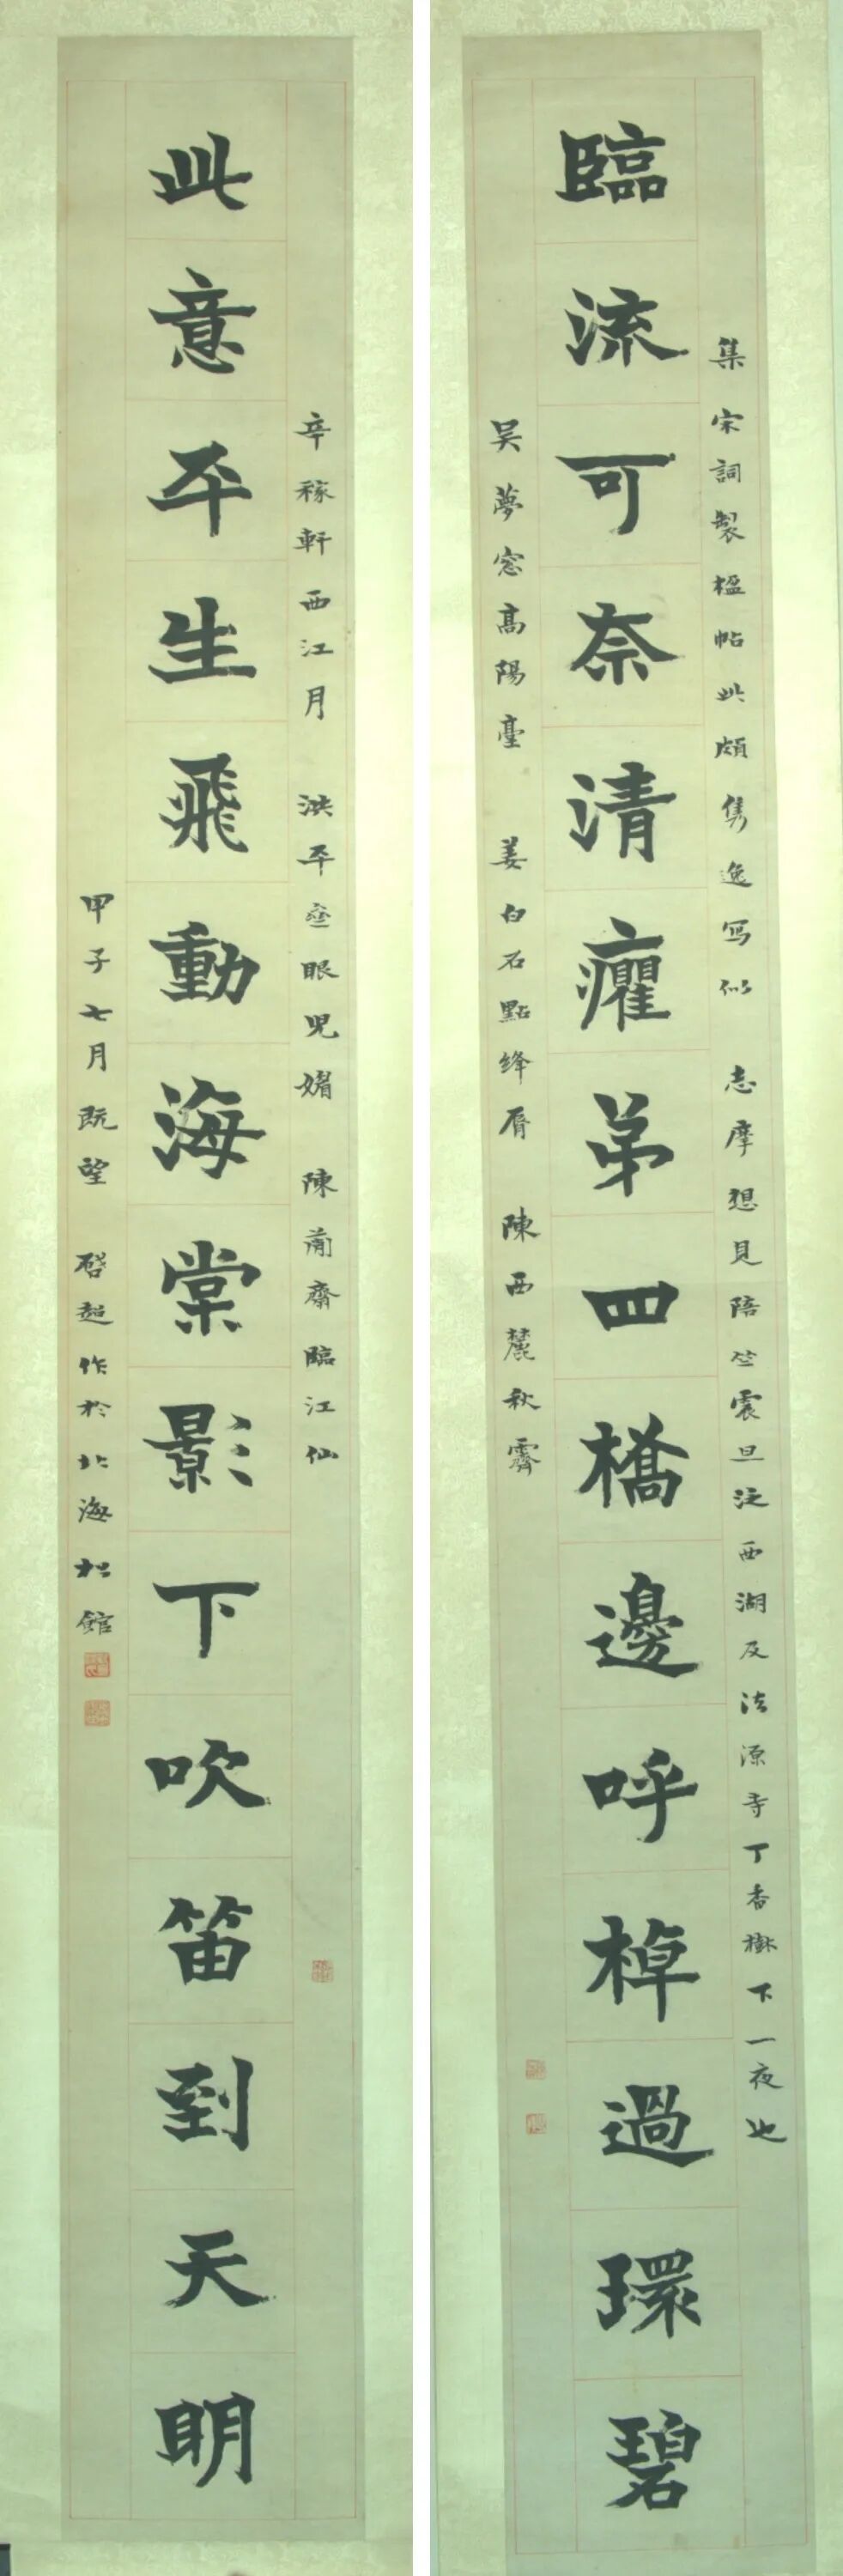 集宋詞製楹帖此頗雋逸寫似 志摩想見陪竺震旦泛西湖及法源寺丁香樹下一夜也
臨流可奈清癯第四橋邊呼棹過環碧
吳夢窓高陽臺 姜白石點絳脣 陳西麓秋霽
辛稼軒西江月 洪平齋眼兒媚 陳簡齋臨江仙
此意平生飛動海棠影下吹笛到天明
甲子七月既望 啓超作於北海松館